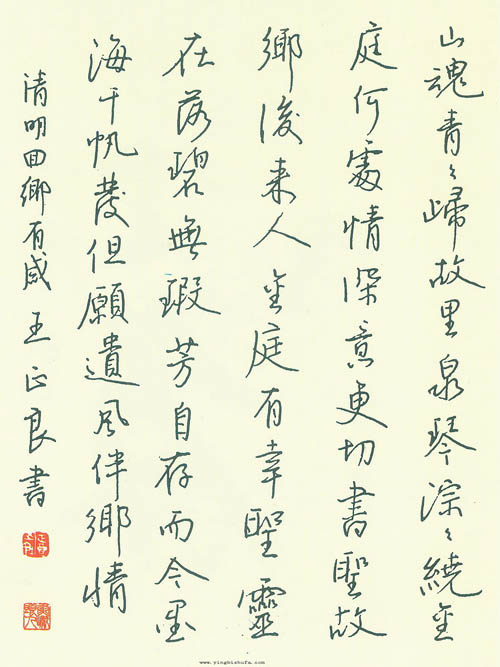 山魂青々歸故里泉琴淙々繞金
庭何處情深意更切書聖故
鄉後来人金庭有幸聖靈
在落碧無瑕芳自存而今墨
海千帆發但願遺風伴鄉情
清明回鄉有感王正良書
www.yingbishufa.com